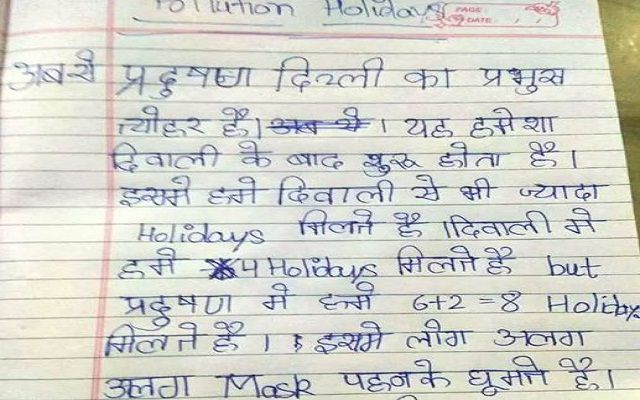 Pollution Holidays
PAGE:
DATE:
अबसे प्रदुषण दिल्ली का प्रमुख
त्योहर है। अब से । यह हमेशा
दिवाली के बाद शुरू होता है।
इसमे हमे दिवाली से भी ज्यादा
Holidays मिलते है ।दिवाली मे
हमे 4 Holidays मिलते है but
प्रदुषण मे हमे 6+2=8 Holidays
मिलते है। इसमे लोग अलग
अलग Mask पहनके घूमते है।